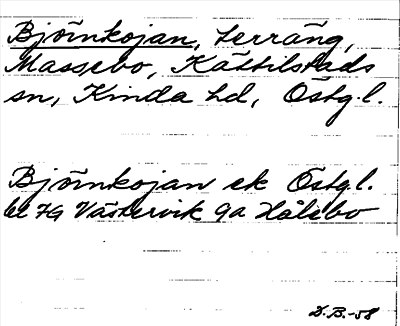 Björnkojan, terräng,
Massebo, Kättilstads
sn, Kinda hd, Östg.l.
Björnkojan ek Östgl.
bl 7G Västervik 9a Hålsbo
D.B.-58